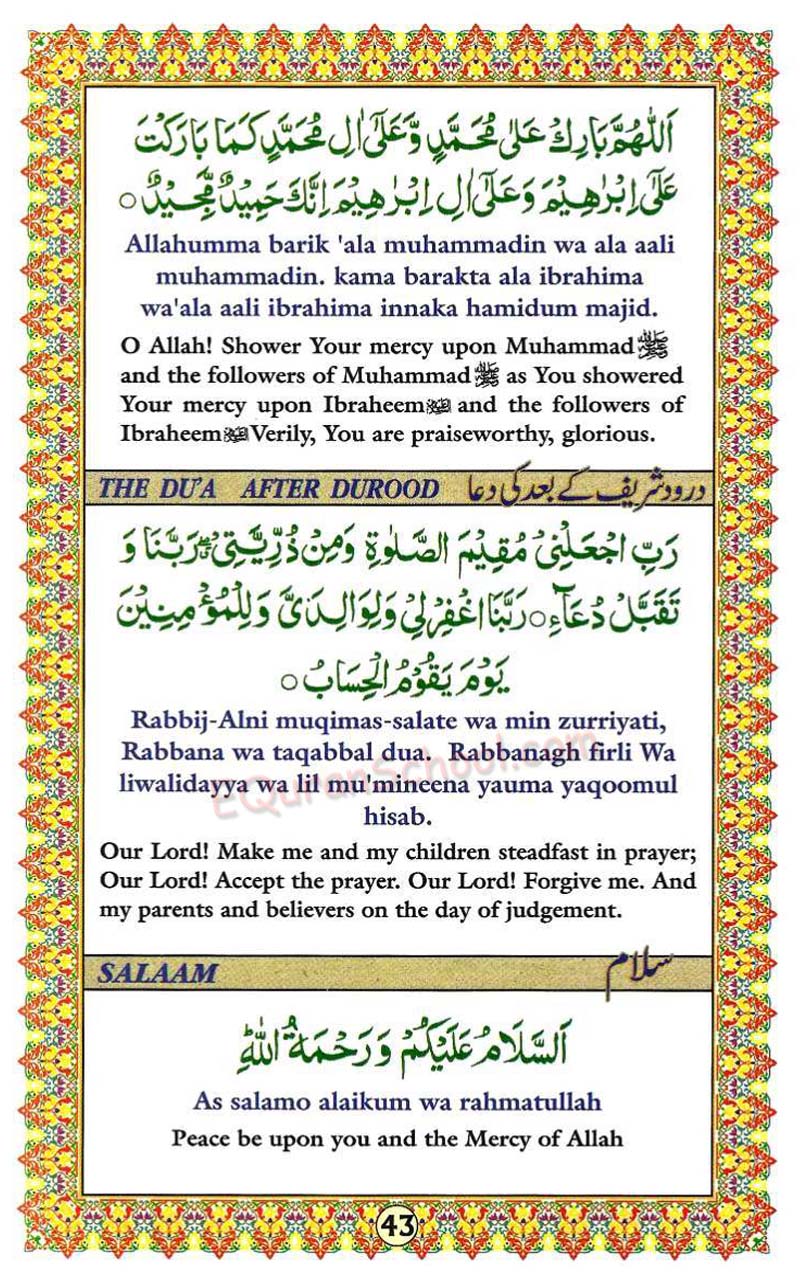 اَللّٰهُمَّ بَارِكْ عَلٰى مُحَمَّدٍ وَّعَلٰٓى اٰلِ مُحَمَّدٍ كَمَا بَارَكْتَ
عَلٰٓى اِبْرٰهِيْمَ وَعَلٰٓى اٰلِ اِبْرٰهِيْمَ اِنَّكَ حَمِيْدٌ مَّجِيْدٌ ○
Allahumma barik 'ala muhammadin wa ala aali
muhammadin. kama barakta ala ibrahima
wa'ala aali ibrahima innaka hamidum majid.
O Allah! Shower Your mercy upon Muhammad ﷺ
and the followers of Muhammad ﷺ as You showered
Your mercy upon Ibraheem and the followers of
Ibraheem Verily, You are praiseworthy, glorious.
THE DU'A AFTER DUROOD درود شریف کے بعد کی دعا
رَبِّ اجْعَلْنِىْ مُقِيْمَ الصَّلٰوةِ وَمِنْ ذُرِّيَّتِىْ رَبَّنَا وَ
تَقَبَّلْ دُعَآءِ ○ رَبَّنَا اغْفِرْلِىْ وَلِوَالِدَىَّ وَلِلْمُؤْمِنِيْنَ
يَوْمَ يَقُوْمُ الْحِسَابُ ○
Rabbij-Alni muqimas-salate wa min zurriyati,
Rabbana wa taqabbal dua. Rabbanagh firli Wa
liwalidayya wa lil mu'mineena yauma yaqoomul
hisab.
EQuranSchool.com
Our Lord! Make me and my children steadfast in prayer;
Our Lord! Accept the prayer. Our Lord! Forgive me. And
my parents and believers on the day of judgement.
SALAAM سلام
اَلسَّلَامُ عَلَيْكُمْ وَرَحْمَةُ اللّٰهِ
As salamo alaikum wa rahmatullah
Peace be upon you and the Mercy of Allah
43